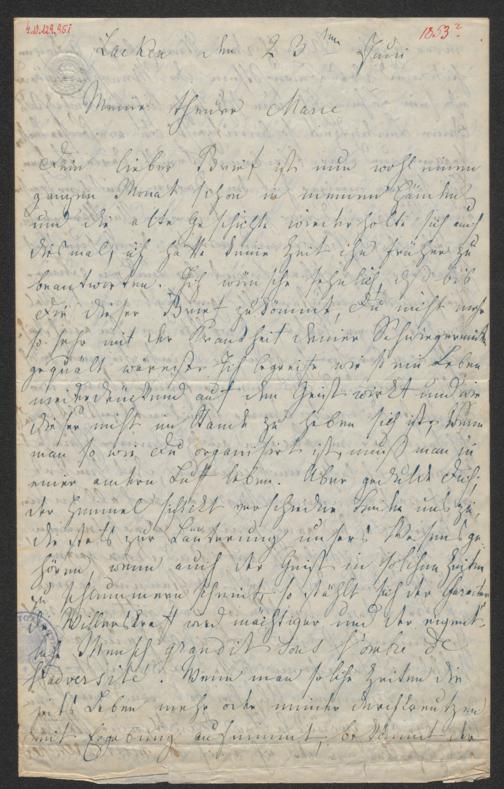 4.II.129.951
1853?
Laeken den 23ten Juni
Meine theure Marie
Dein lieber Brief ist nun wohl einen
ganzen Monat schon in meinen Händen
und die alte Geschichte wiederholte sich auch
diesmal, ich hatte keine Zeit ihn früher zu
beantworten. Ich wünsche sehnlich, daß bis
Dir dieser Brief zukömmt, Du nicht mehr
so sehr mit der Krankheit Deiner Schwiegermutter
gequält wärest. Ich begreife wie so ein Leben
niederdrückend auf den Geist wirkt und wie
dieser nicht im Stande zu heben sich ist, wenn
man so wie Du organisirt ist, muß man in
einer andern Luft leben. Aber gedulde Dich,
der Himmel schickt verschiedene uns zu,
die stets zur Läuterung unsers Wesens ge-
hören, wenn auch der Geist in solchen Zeiten
zu schlummern scheint, so stählt sich der Charakter
die Willenskraft wird mächtiger und der eigent-
liche Mensch grandit sous l'ombre de
l'adversité. Wenn man solche Zeiten die
Leben mehr oder minder durchkreutzen
mit Ergebung aufnimmt, bekömmt der